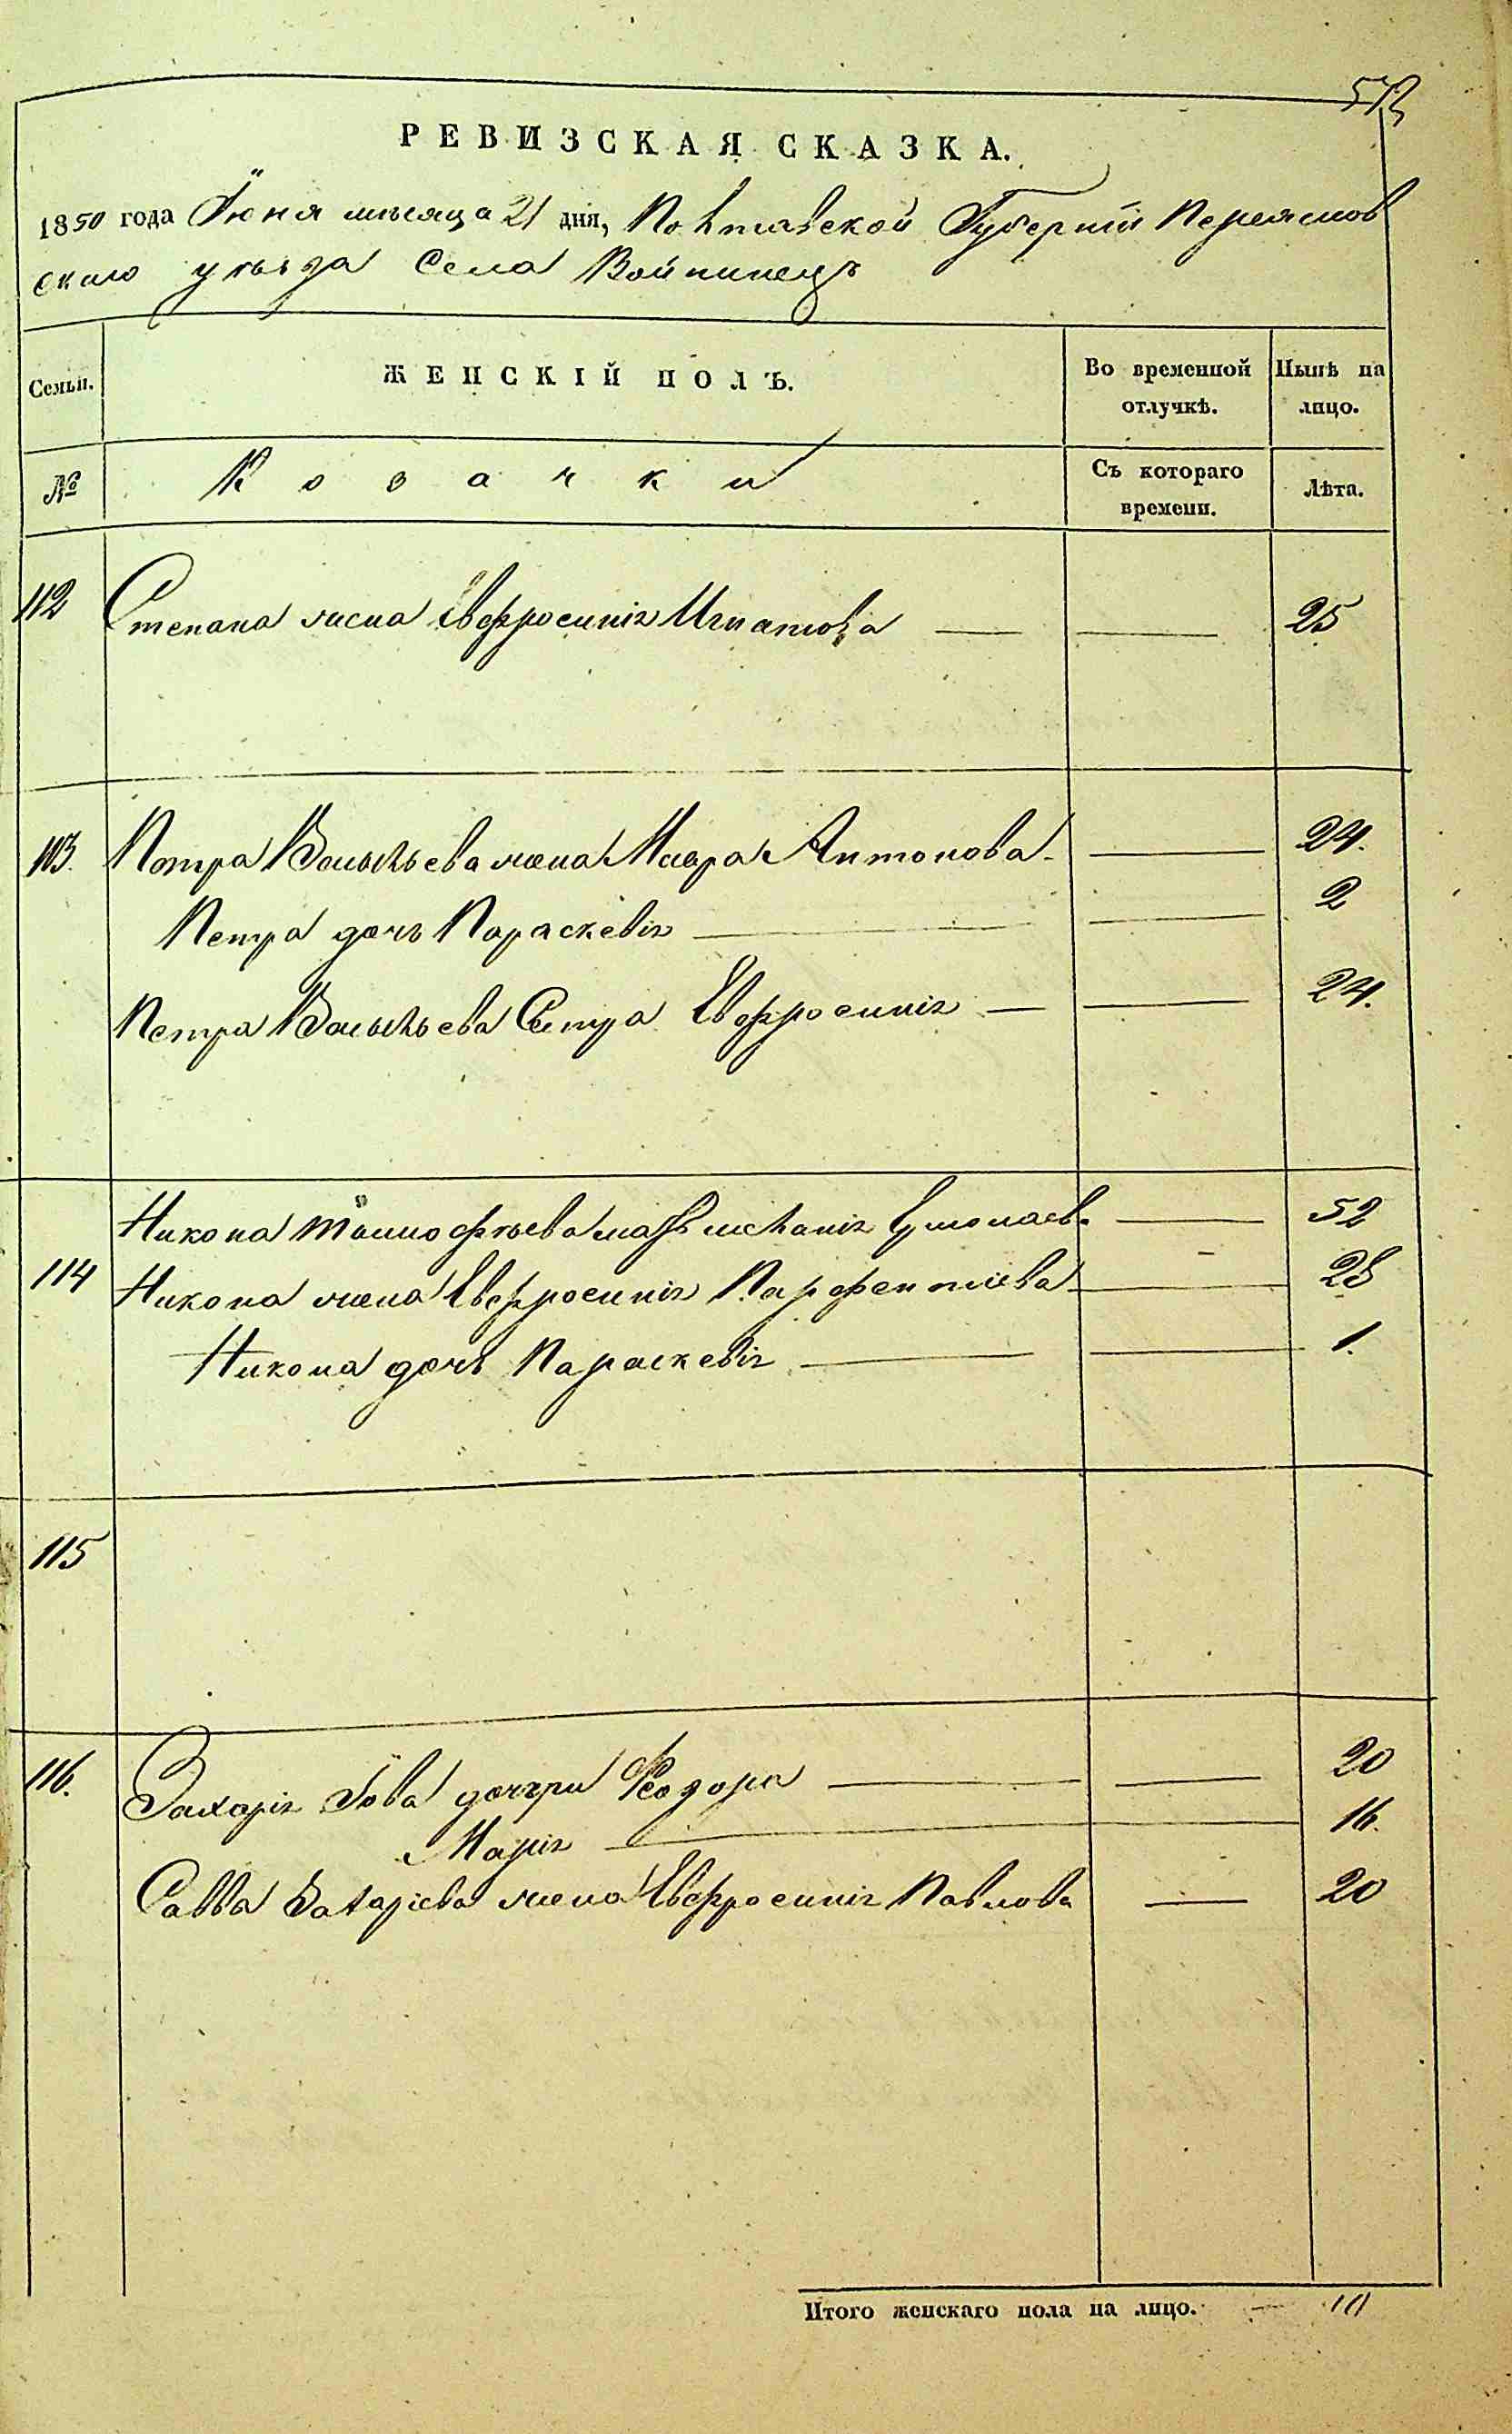 РЕВИЗСКАЯ СКАЗКА.
1850 года Іюня мѣсяца 21 дня, Полтавской Губерніи Переяслов
скаго уѣзда Села Войтинецъ
Семьи. ЖЕНСКІЙ ПОЛЪ. Во временной отлучкѣ. Нынѣ на лицо.
№ Козачки Съ котораго времени. Лѣта.
112 Степана жена Евфросинія Игнатова — — 25
113. Петра Васильева жена Мавра Антонова — 24.
Петра дочь Параскевія — — 2
Петра Васильева Сестра Евфросинія — — 24.
Никона Тимофѣева мать — 52
114 Никона жена Евфросинія Парфентіева — 28
Никона дочь Параскевія — — 1.
115
116. Захарія дочери Феодора — — 20
Марія — 16.
Савва Захаріева жена Евфросинія Павлова — 20
Итого женскаго пола на лицо. — 10